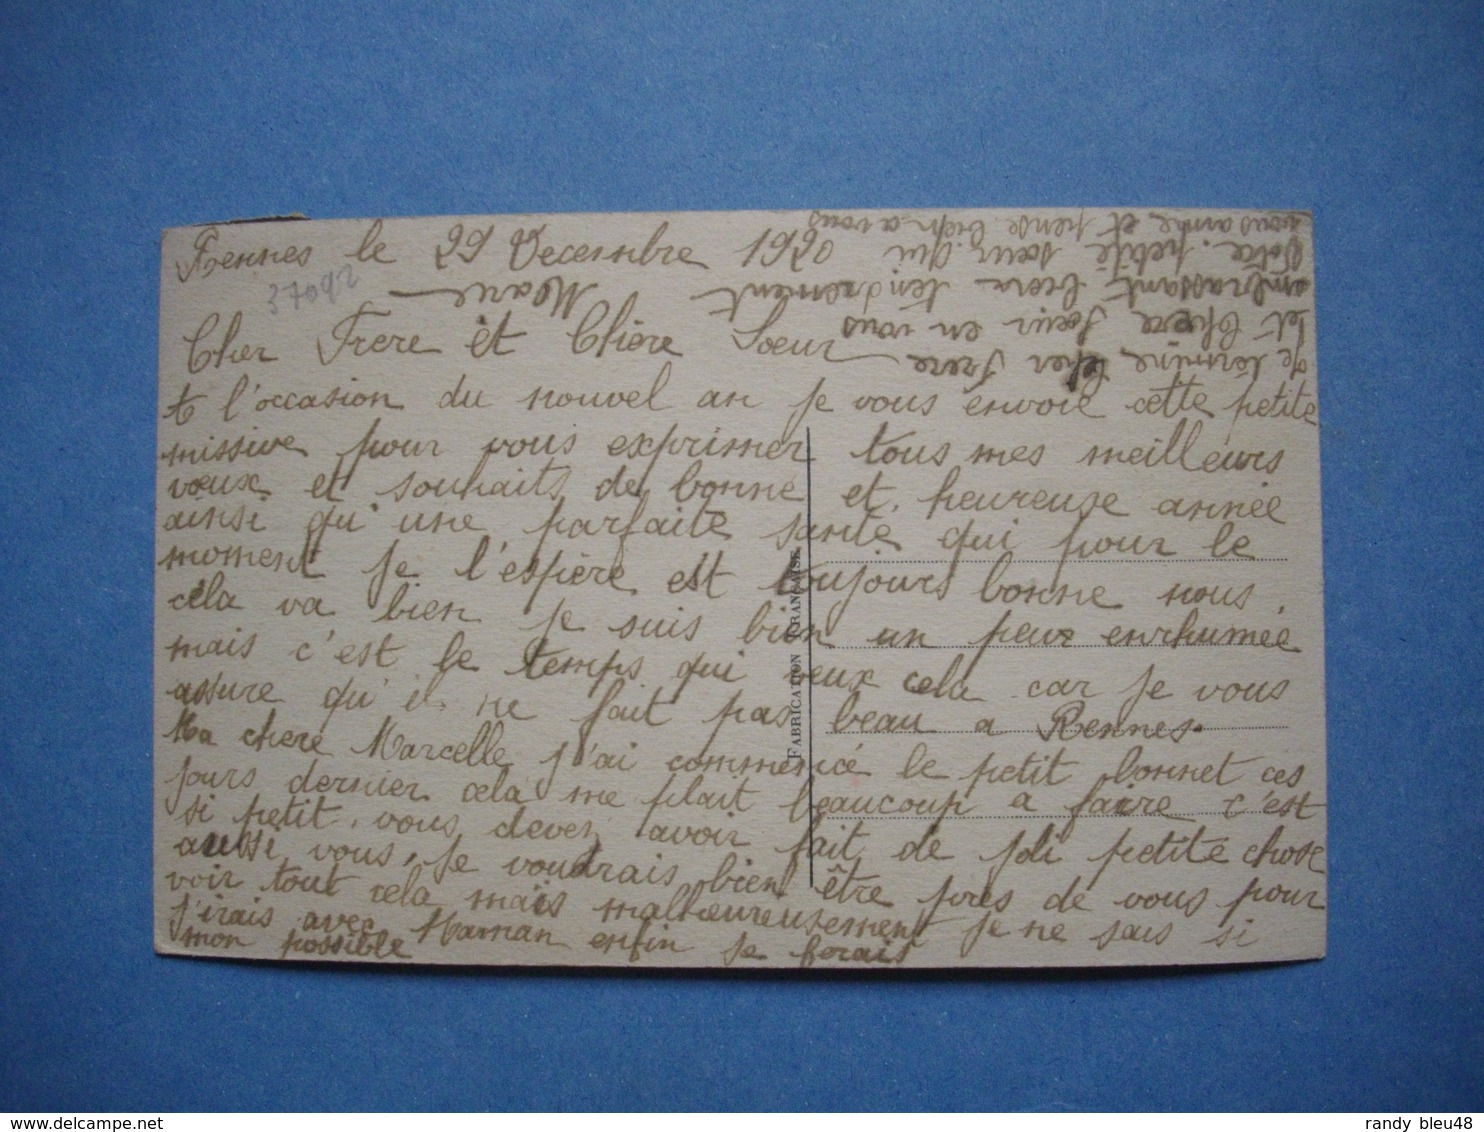 Rennes le 29 Decembre 1920
37092
Cher Frere et Chère Soeur
A l'occasion du nouvel an je vous envoie cette petite
missive pour vous exprimer tous mes meilleurs
voeux et souhaits de bonne et heureuse année
ainsi qu'une parfaite santé qui pour le
moment je l'espère est toujours bonne nous,
cela va bien je suis bien un peux enrhumée
mais c'est le temps qui veux cela car je vous
assure qu'il ne fait pas beau a Rennes.
Ma chere Marcelle j'ai commencé le petit bonnet ces
jours dernier cela me plait beaucoup a faire c'est
si petit, vous devez avoir fait de joli petite chose
aussi vous, je voudrais bien être près de vous pour
voir tout cela mais malheureusement je ne sais si
j'irais avec Maman enfin je ferais
mon possible
Je termine Cher Frere
et Chere Soeur en vous
embrassant bien tendrement
Votre petite soeur qui
vous aime et pense bien a vous
Marie
FABRICATION FRANÇAISE
randy bleu48